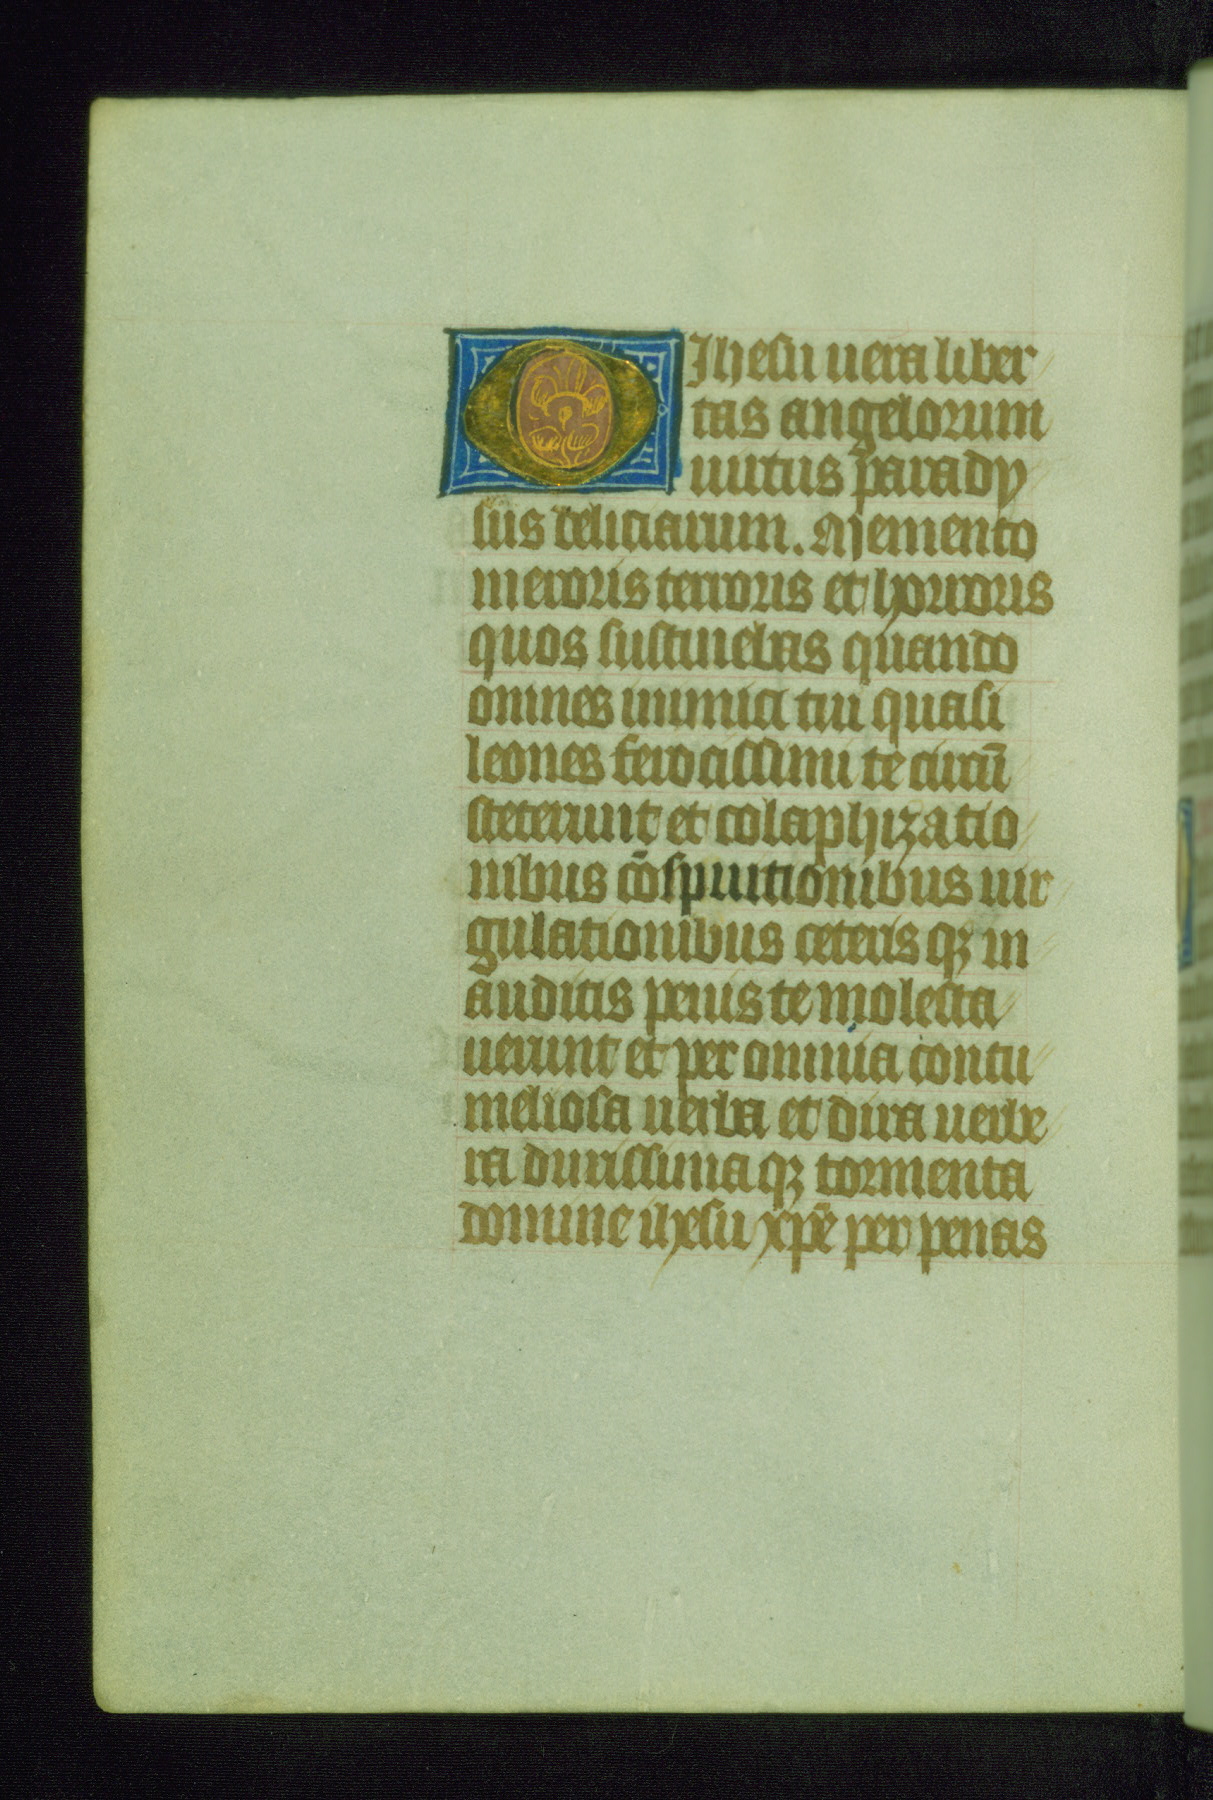 O Jhesu uera liber
tas angelorum
uirtus parady
sus deliciarum. Memento
meroris terroris et horroris
quos sustinebas quando
omnes inimici tui quasi
leones ferocissimi te circū
steterunt et colaphizatio
nibus cōspuitionibus uir
gulationibus ceteris qꝫ in
auditis penis te molesta
uerunt et per omnia contu
meliosa uerba et dira uerbe
ra durissima qꝫ tormenta
domine ihesu xp̄e per penas